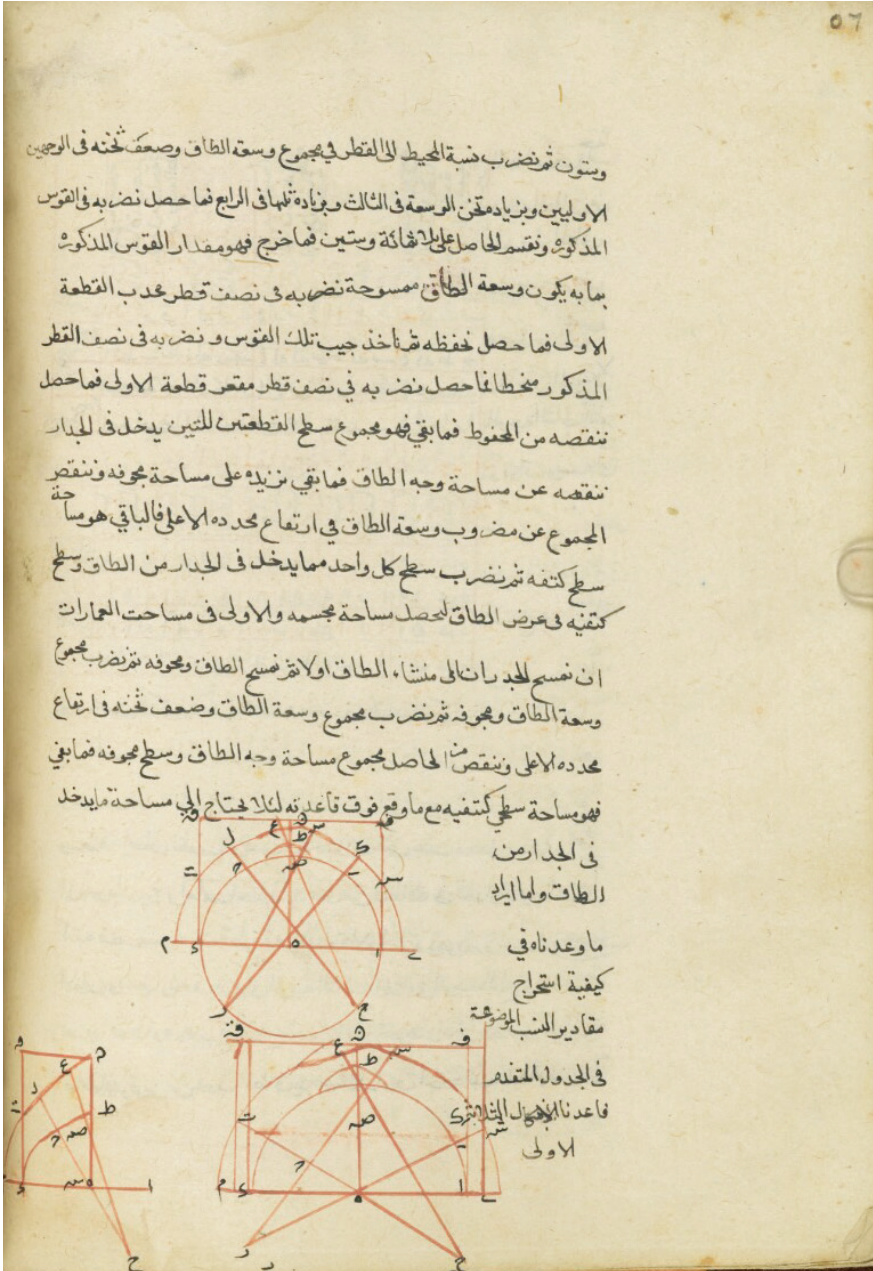 وستون ثم نضرب نسبة المحيط الى القطر في مجموع وسعة الطاق وضعف ثخنه في الوجهين
الاوليين وبزيادة ثخن الوسعة في الثالث وبزيادة ثلثها في الرابع فما حصل نضربه في القوس
المذكورة ونقسم الحاصل على ثلاثمائة وستين فما خرج فهو مقدار القوس المذكوره
بما به يكون وسعة الطاق ممسوحة نضربه في نصف قطر محدب القطعة
الاولى فما حصل نحفظه ثم ناخذ جيب تلك القوس و نضربه في نصف القطر
المذكور منحطا فما حصل نضربه في نصف قطر مقعر قطعة الاولى فما حصل
ننقصه من المحفوظ فما بقي فهو مجموع سطح القطعتين للتين يدخل في الجدار
ننقصه عن مساحة وجه الطاق فما بقي نزيده على مساحة مجوفه وننقص
المجموع عن مضروب وسعة الطاق في ارتفاع محدده الاعلى فالباقي هو مساحة
سطح كتفه ثم نضرب سطح كل واحد مما يدخل في الجدار من الطاق وسطح
كتفيه في عرض الطاق ليحصل مساحة مجسمه والاولى في مساحت العمارات
ان نمسح الجدران الى منشاء الطاق اولا ثم نمسح الطاق ومجوفه ثم نضرب مجموع
وسعة الطاق و مجوفه ثم نضرب مجموع وسعة الطاق وضعف ثخنه في ارتفاع
محدده الاعلى وننقص من الحاصل مجموع مساحة وجه الطاق وسطح مجوفه فما بقي
فهو مساحة سطحي كتفيه مع ما وقع فوق قاعدته لئلا يحتاج الي مساحة ما يدخل
في الجدار من
الطاق واما ايراد
ما وعدناه في
كيفية استخراج
مقادير النسب الموضوعة
في الجدول المتقدم
فاعدنا الثلاثة
الاولى